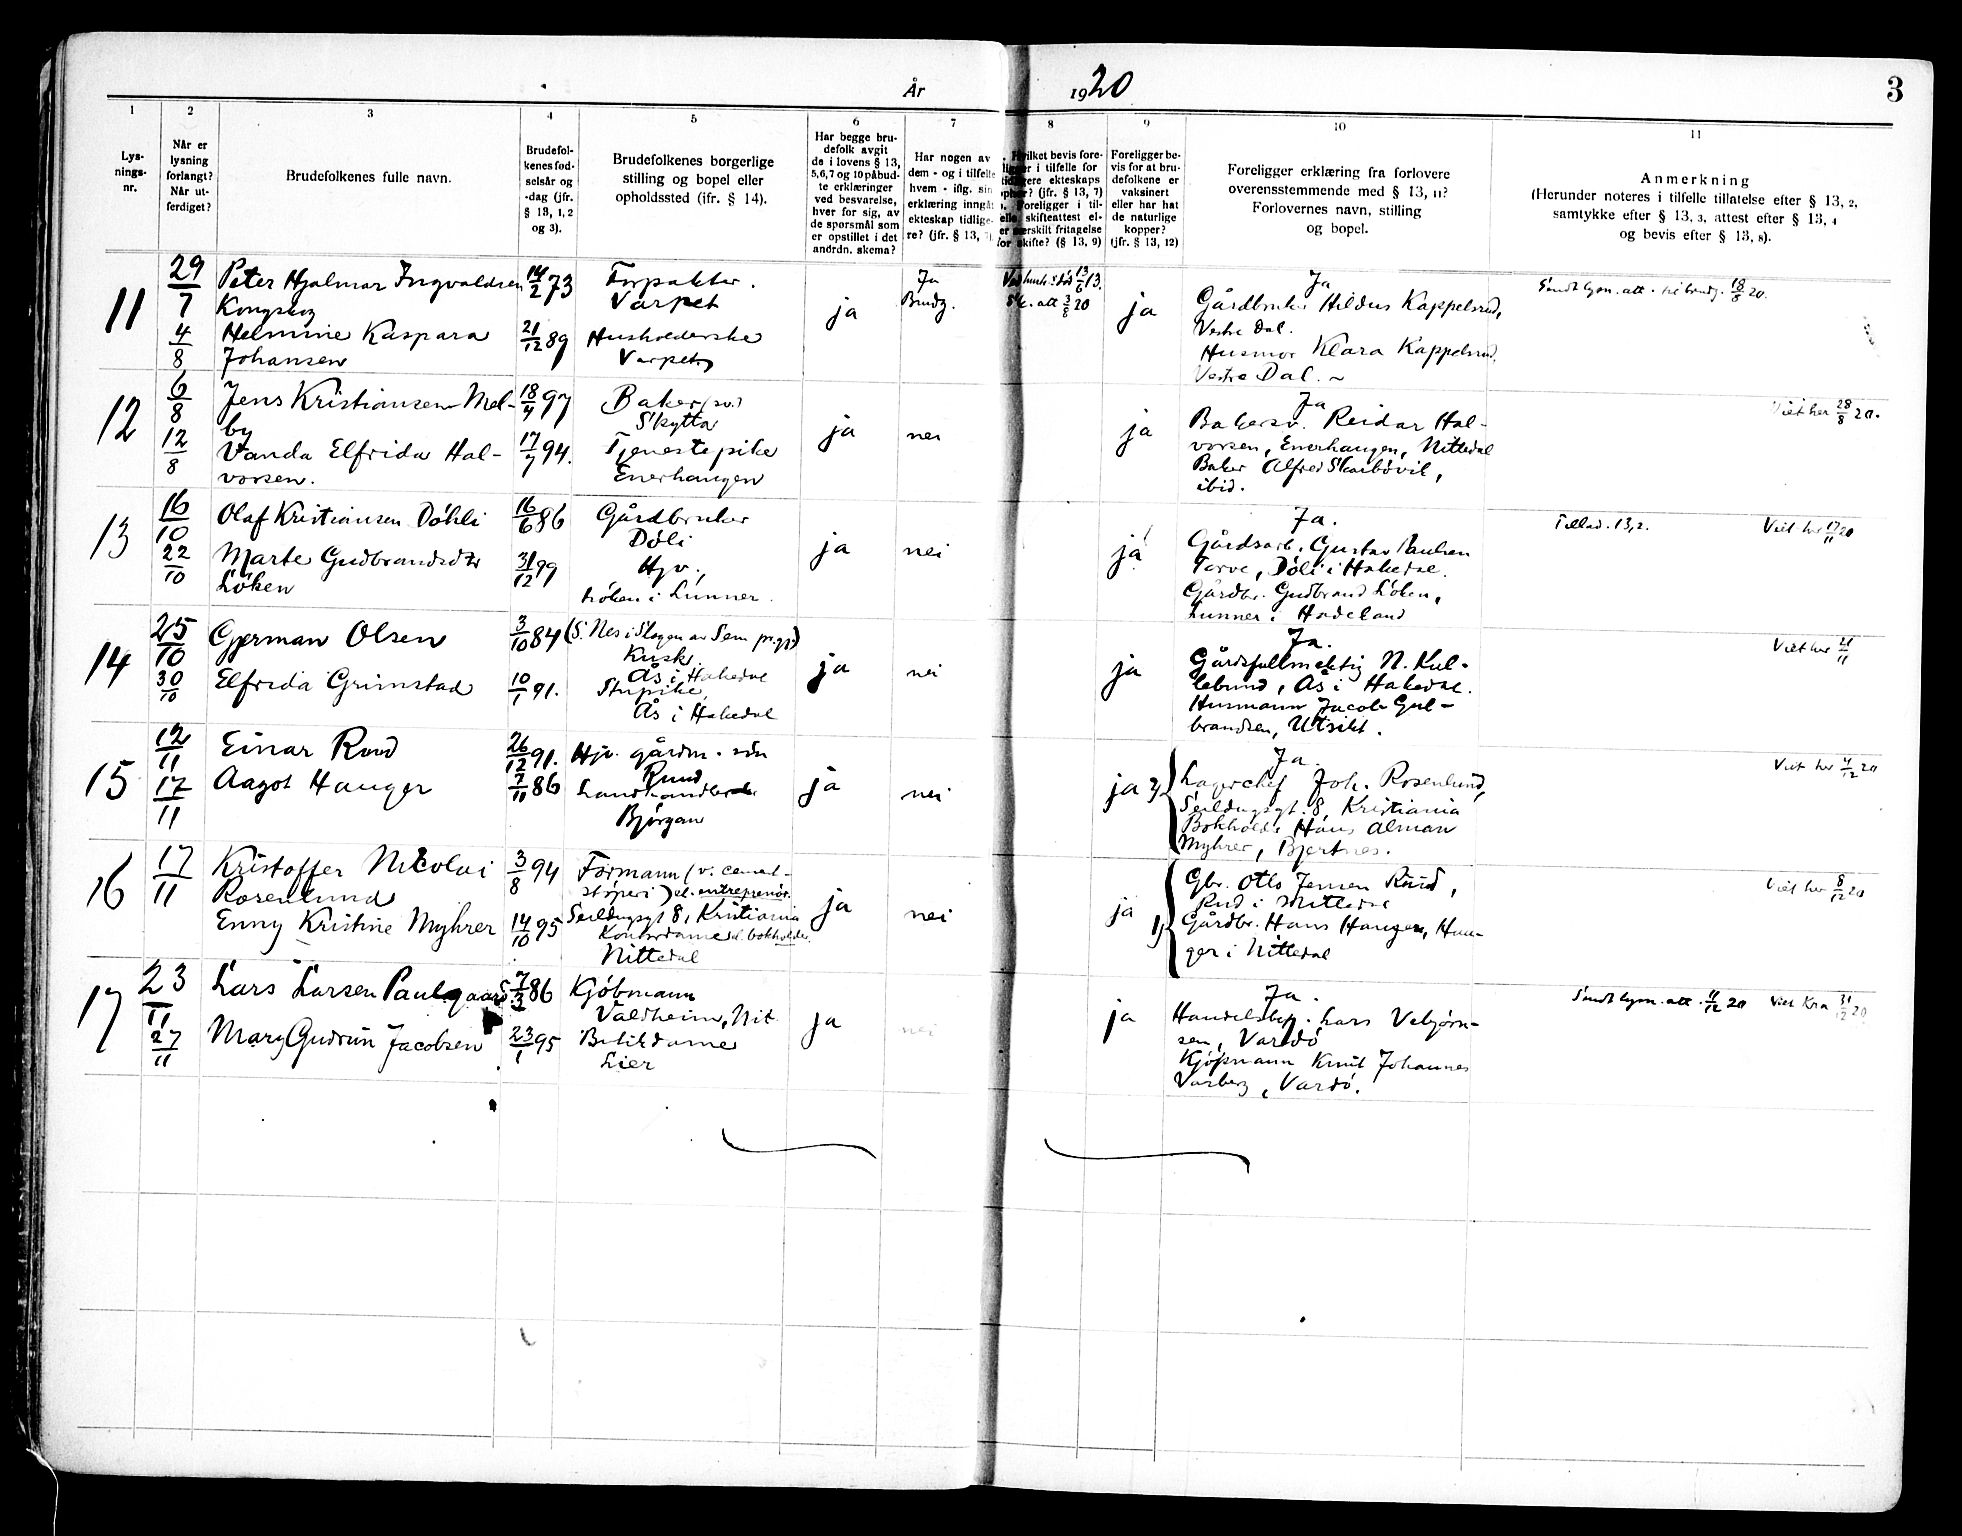 År 1920
3
1
2
3
4
5
6
7
8
9
10
11
Lys-
nings-
nr.
Når er
lysning
forlangt?
Når ut-
ferdiget?
Brudefolkenes fulle navn.
Brudefol-
kenes fød-
selsår og
-dag (jfr.
§ 13, 1, 2
og 3).
Brudefolkenes borgerlige
stilling og bopel eller
opholdssted (ifr. § 14).
Har begge bru-
defolk avgit
de i lovens § 13,
5,6,7 og 10 påbud-
te erklæringer
ved besvarelse,
hver for sig, av
de spørsmål som
er opstillet i det
anordn. skema?
Har nogen av
dem - og i tilfelle
hvem - iflg. sin
erklæring inngåt
ekteskap tidlige-
re? (jfr. § 13,
Hvilket bevis fore-
ligger i tilfelle for
tidligere ekteskaps
ophør? (jfr. § 13, 7)
Foreligger i til-
felle skifteattest el-
ler særskilt fritagelse
for skifte? (§ 13, 9)
Foreligger be-
vis for at bru-
defolkene er
vaksinert
eller har hat
de naturlige
kopper?
(jfr. § 13, 12)
Foreligger erklæring fra forlovere
overensstemmende med § 13, 11?
Forlovernes navn, stilling
og bopel.
Anmerkning
(Herunder noteres i tilfelle tillatelse efter § 13, 2,
samtykke efter § 13, 3, attest efter § 13, 4
og bevis efter § 13, 8).
11
29/7
4/8
Peter Hjalmar Ingvaldsen
Kongskog
Helmine Kaspara
Johansen
14/2 73
21/12 89
Forpakter.
Varpet
Husholderske
Varpet
ja
Ja
Brudg.
13/6 13.
Sk. att 3/8 20
ja
Ja
Gårdbruk. Hildus Kappelsrud,
Vestre Dal.
Husmor Klara Kappelsrud,
Vestre Dal.
Sendt lysn. att. til brudg. 18/8 20.
12
6/8
12/8
Jens Kristiansen Mel-
by
Vanda Elfrida Hal-
vorsen.
18/4 97
17/7 94.
Baker (sv.)
Skytta
Tjenestepike
Enerhaugen
ja
nei
ja
Ja
Bakersv. Reidar Hal-
vorsen, Enerhaugen, Nittedal
Baker Alfred Skarbövik,
ibid.
Viet her 28/8 20.
13
16/10
22/10
Olaf Kristiansen Döhli
Marte Gudbrandsdtr
Löken
16/6 86
31/12 99
Gårdbruker
Döli
Hjv.,
Löken i Lunner.
ja
nei
ja
Ja.
Gårdsarb. Gustav Paulsen
Tarve, Döli i Hakedal.
Gårdbr. Gudbrand Löken,
Lunner i Hadeland
Tillad. 13,2.
Viet her 17/11 20
14
25/10
30/10
German Olsen
Elfrida Grimstad
3/10 84
10/1 91.
(S. Nes i Slagen av Sem pr.gj.)
Kusk
Ås i Hakedal
Stupike,
Ås i Hakedal
ja
nei
ja
Ja.
Gårdsfullmektig N. Kul-
lebund, Ås i Hakedal.
Husmann Jacob Gul-
brandsen, Utsikt.
Viet her 21/11
15
12/11
17/11
Einar Rud
Aagot Hauger
26/12 91.
7/11 86
Hjv. gårdm. sön
Rud
Landhandlerske
Bjørgan
ja
nei
ja
Ja.
Lagerchef Joh. Rosenlund,
Seildugsgt. 8, Kristiania
Bokholder Hans Alman
Myhrer, Bjertnes.
Viet her 4/12 20
16
17/11
Kristoffer Nicolai
Rosenlund
Enny Kristine Myhrer
3/8 94
14/10 95
Formann (v. cement-
støperi) el. entreprenör.
Seildugsgt 8, Kristiania
Kontordame el. bokholder
Nittedal
ja
nei
ja
Gbr. Otto Jensen Rud,
Rud i Nittedal
Gårdbr. Hans Hauger, Hau-
ger i Nittedal
Viet her 8/12 20
17
23/11
27/11
Lars Larsen Paulsgaard
Mary Gudrun Jacobsen
7/3 86
23/1 95
Kjöbmann
Valdheim, Nit.
Butikdame
Lier
ja
nei
ja
Ja.
Handelsbest. Lars Vebjörn-
sen, Vardö
Kjöpmann Knut Johannes
Varberg, Vardö.
Sendt lysn. att. 11/12 20
Viet Kra 31/12 20